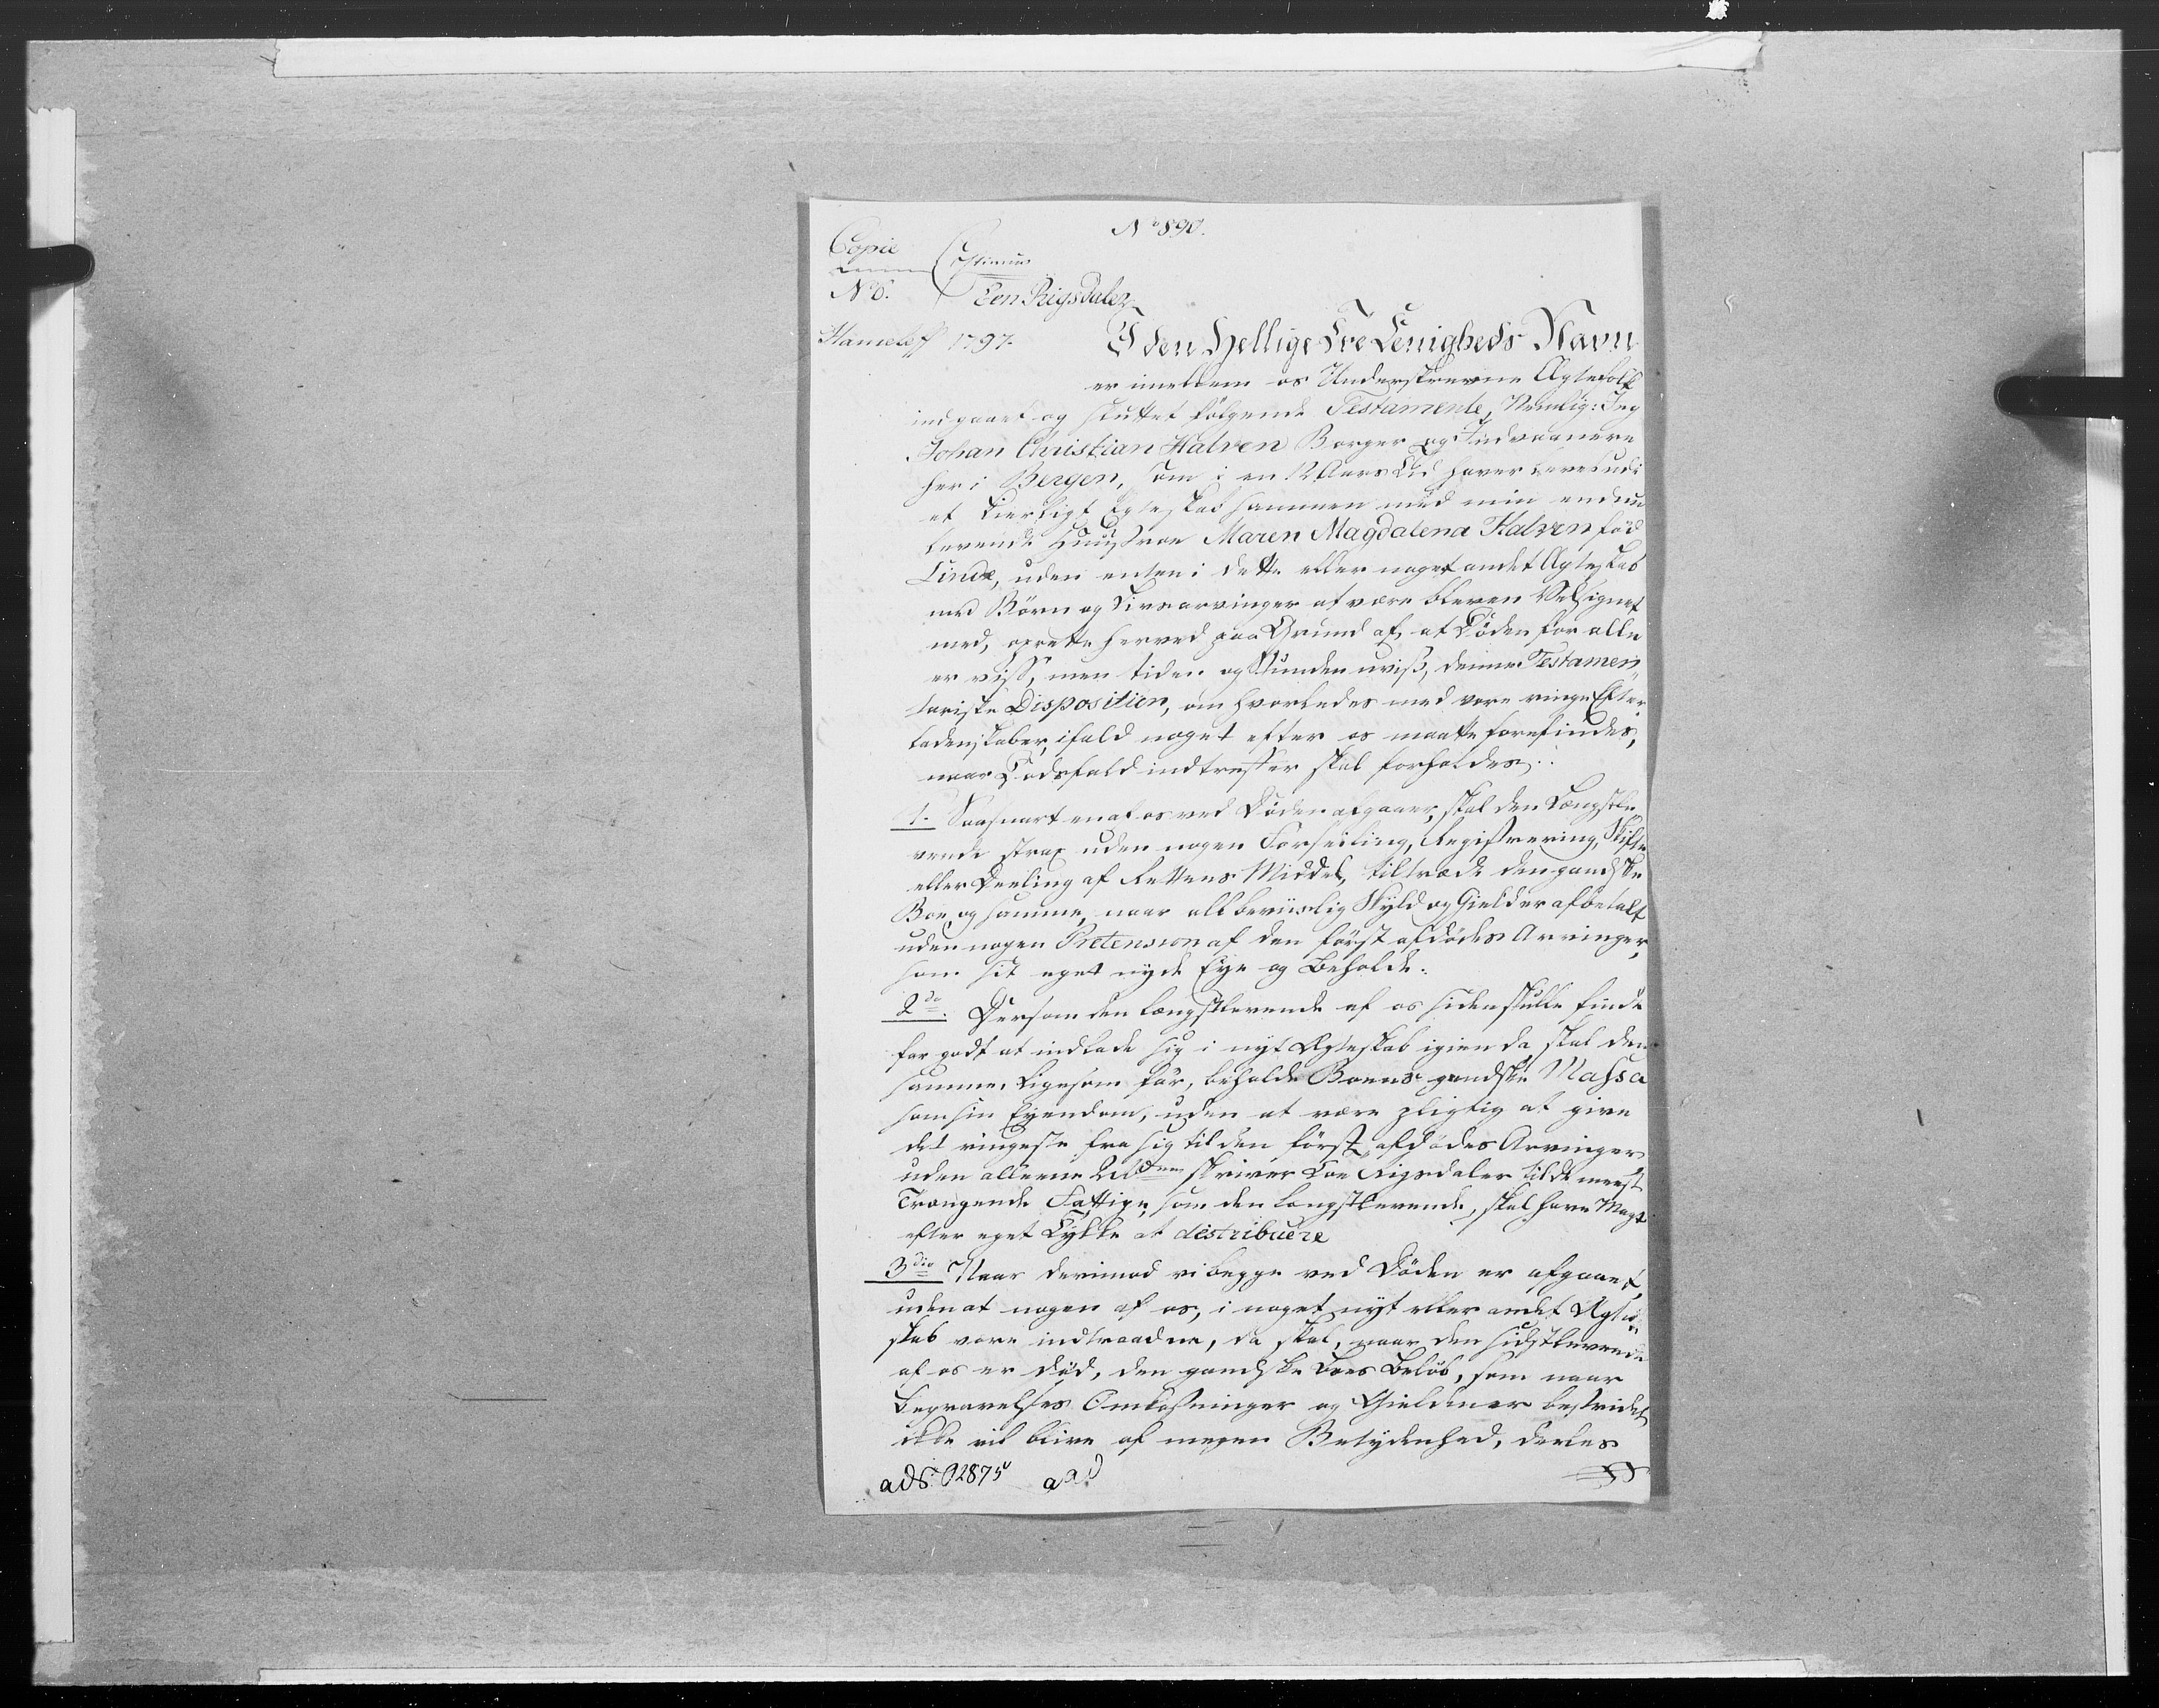 No 890.
Copie
No 8. Een Rigsdaler
1797.
I den Hellige Tre Eenigheds Navn
er imellem os Underskrevne Ægtefolk
indgaaet og sluttet følgende Testamente, Nemlig: Jeg
Johan Christian Halven Borger og Indvaanere
her i Bergen, som i en 12 Aars Tid haver levet udi
et kierligt Egteskab sammen med min endnu
levende Huustroe Maren Magdalena Halven fød
Linde, uden enten i dette eller noget andet Ægteskab
med Børn og Livsarvinger at være bleven Velsignet
med, oprette herved paa Grund af, at Døden for alle
er viss, men tiden og Stunden uviss, denne Testamen„
tariske Disposition, om hvorledes med vore ringe Efter„
ladenskaber, ifald noget efter os maatte forefindes,
naar Dødsfald indtreffer skal forholdes.
1. Saasnart en af os ved Døden afgaaer, skal den Længstle„
vende strax uden nogen Forseiling, Registrering, Skifte
eller Deeling af Rettens Middel, tiltræde den gandske
Boe, og samme, naar all beviislig Skyld og Gield er afbetalt
uden nogen Pretension af den først afdødes Arvinger,
som sit eget nyde Eye og Beholde.
2do. Dersom den længstlevende af os siden skulle finde
for godt at indlade sig i nyt Ægteskab igien da skal den
samme, ligesom før, beholde Boens gandske Massa
som sin Eyendom, uden at være pligtig at give
det ringeste fra sig til den først afdødes Arvinger
uden alleene 2 Rdr skriver Toe Rigsdaler til de meest
Trængende Fattige, som den længstlevende, skal have Magt
efter eget Tykke at distribuere
3die Naar derimod vi begge ved Døden er afgaaet,
uden at nogen af os, i noget nyt eller andet Ægte„
skab vore indtraadne, da skal, naar den sidstlevende
af os er død, den gandske Boes Beløb, som naar
Begravelses Omkostninger og Gielden er bestridet
ikke vil blive af megen Betydenhed, deeles
ad S: 2875